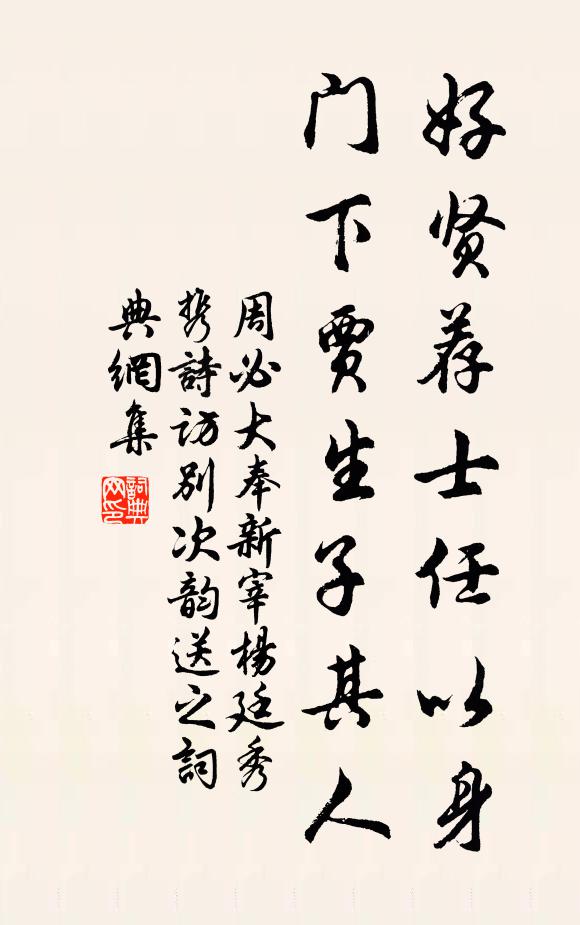 好贤荐士任以身
门下贾生子其人
周必大奉新宰楊廷秀
携詩访别次韵送之詞
典網集
詞典网印